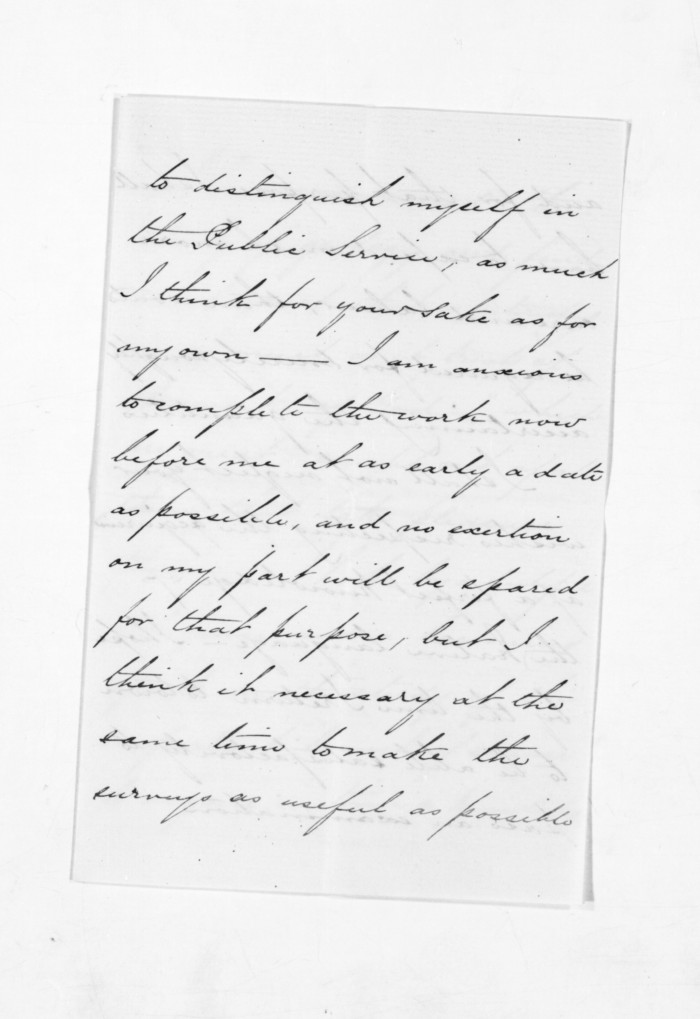 to distinguish myself in
the Public Service, as much
I think for your sake as for
my own — I am anxious
to complete the work now
before me at as early a date
as possible, and no exertion
on my part will be spared
for that purpose, but I
think it necessary at the
same time to make the
surveys as useful as possible